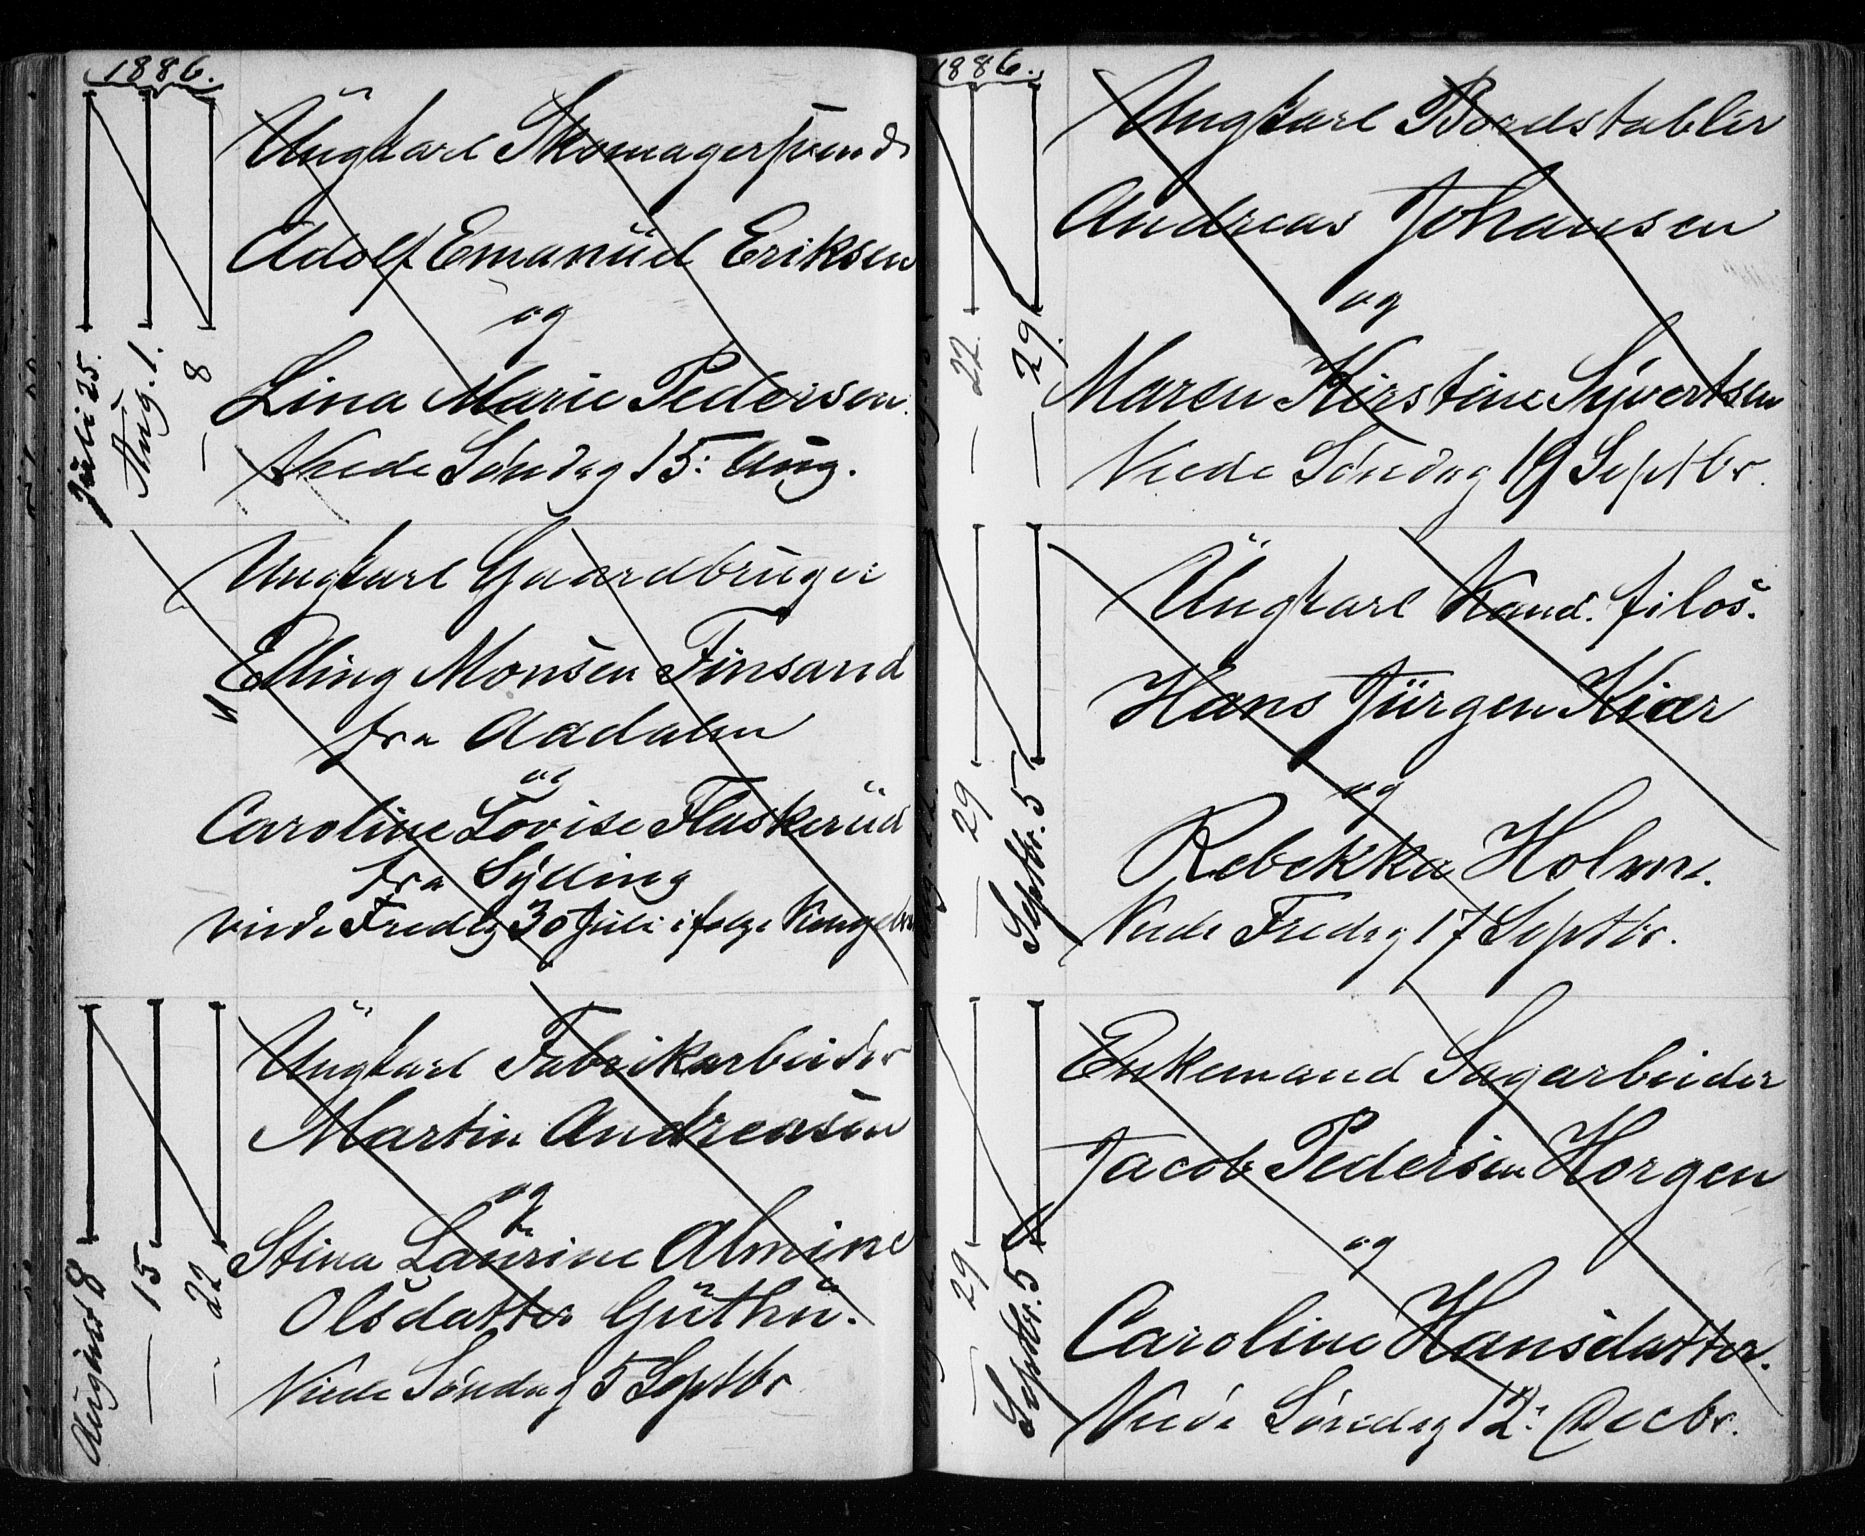 1886.
Juli 25.
Aug. 1.
— 8
Ungkarl Skomagersvend
Adolf Emanuel Eriksen
og
Lina Marie Pedersen.
Viede Søndag 15: Aug.
Ungkarl Gaardbruger
Elling Monsen Finsand
fra Aadalen
og
Caroline Lovise Flaskerud
fra Sylling
viede Fredag 30 Juli ifølge Kongebr
August 8
— 15
— 22
Ungkarl Fabrikarbeider
Martin Andreasen
og
Stina Laurine Almine
Olsdatter Guthu.
Viede Søndag 5 Septbr
1886.
— 22.
— 29.
Ungkarl Bordstabler
Andreas Johansen
og
Maren Kirstine Syvertsen
Viede Søndag 19 Septbr.
— 29
Septbr. 5
Ungkarl Kand. filos.
Hans Jürgen Kiær
og
Rebekka Holm.
Viede Fredag 17 Septbr.
— 29
Septbr. 5
Enkemand Sagarbeider
Jacob Pedersen Horgen
og
Caroline Hansdatter.
Viede Søndag 12: Decbr.